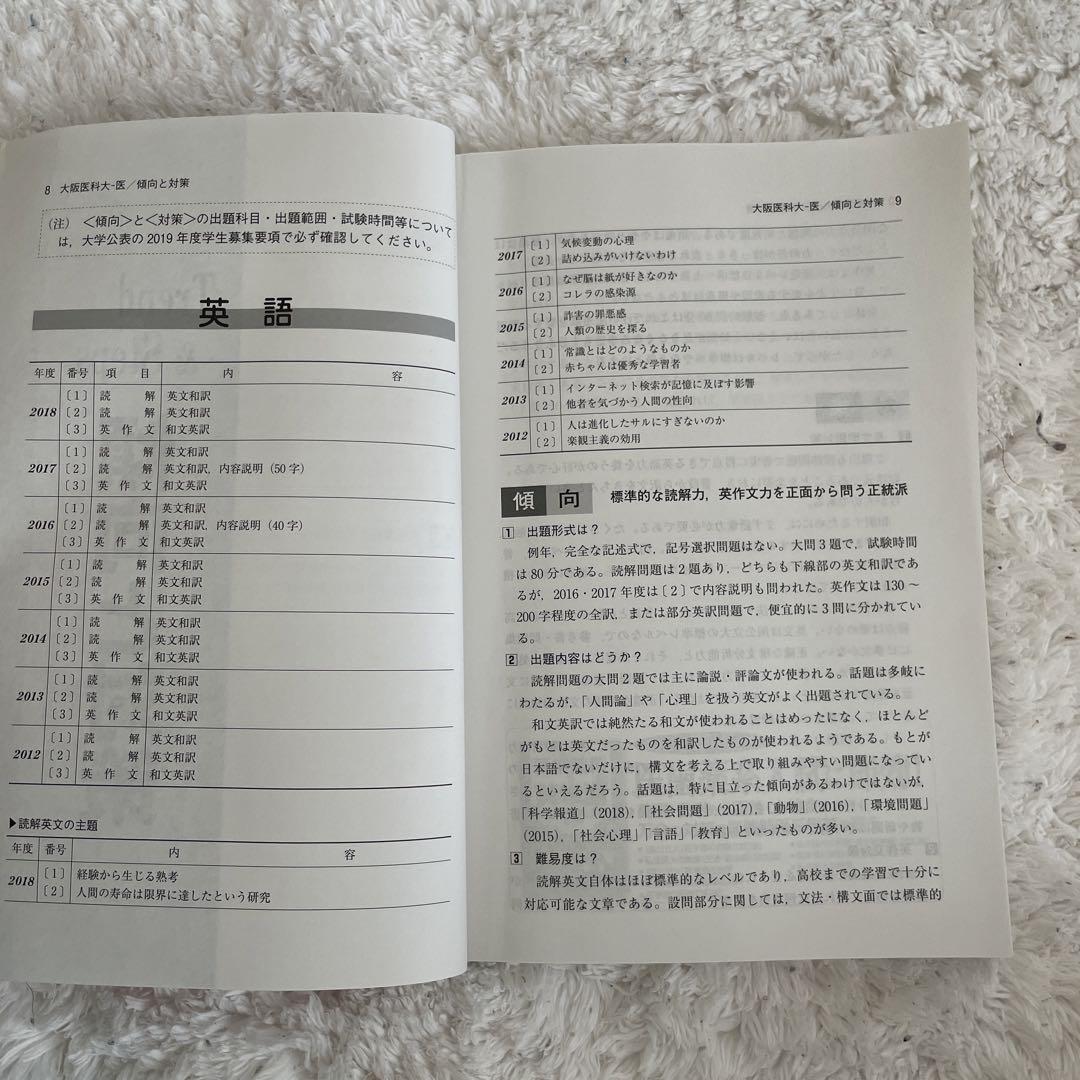 8 大阪医科大-医／傾向と対策
（注） ＜傾向＞と＜対策＞の出題科目・出題範囲・試験時間等について
は，大学公表の 2019 年度学生募集要項で必ず確認してください。
英 語
年度 番号 項 目 内 容
2018 〔1〕 読 解 英文和訳
〔2〕 読 解 英文和訳
〔3〕 英 作 文 和文英訳
2017 〔1〕 読 解 英文和訳
〔2〕 読 解 英文和訳，内容説明（50 字）
〔3〕 英 作 文 和文英訳
2016 〔1〕 読 解 英文和訳
〔2〕 読 解 英文和訳，内容説明（40 字）
〔3〕 英 作 文 和文英訳
2015 〔1〕 読 解 英文和訳
〔2〕 読 解 英文和訳
〔3〕 英 作 文 和文英訳
2014 〔1〕 読 解 英文和訳
〔2〕 読 解 英文和訳
〔3〕 英 作 文 和文英訳
2013 〔1〕 読 解 英文和訳
〔2〕 読 解 英文和訳
〔3〕 英 作 文 和文英訳
2012 〔1〕 読 解 英文和訳
〔2〕 読 解 英文和訳
〔3〕 英 作 文 和文英訳
▶読解英文の主題
年度 番号 内 容
2018 〔1〕 経験から生じる熟考
〔2〕 人間の寿命は限界に達したという研究
大阪医科大-医／傾向と対策 9
2017 〔1〕 気候変動の心理
〔2〕 詰め込みがいけないわけ
2016 〔1〕 なぜ脳は紙が好きなのか
〔2〕 コレラの感染源
2015 〔1〕 詐害の罪悪感
〔2〕 人類の歴史を探る
2014 〔1〕 常識とはどのようなものか
〔2〕 赤ちゃんは優秀な学習者
2013 〔1〕 インターネット検索が記憶に及ぼす影響
〔2〕 他者を気づかう人間の性向
2012 〔1〕 人は進化したサルにすぎないのか
〔2〕 楽観主義の効用
傾 向 標準的な読解力，英作文力を正面から問う正統派
1 出題形式は？
例年，完全な記述式で，記号選択問題はない。大問 3 題で，試験時間
は 80 分である。読解問題は 2 題あり，どちらも下線部の英文和訳であ
るが，2016・2017 年度は〔2〕で内容説明も問われた。英作文は 130～
200 字程度の全訳，または部分英訳問題で，便宜的に 3 問に分かれてい
る。
2 出題内容はどうか？
読解問題の大問 2 題では主に論説・評論文が使われる。話題は多岐に
わたるが，「人間論」や「心理」を扱う英文がよく出題されている。
和文英訳では純然たる和文が使われることはめったになく，ほとんど
がもとは英文だったものを和訳したものが使われるようである。もとが
日本語でないだけに，構文を考える上で取り組みやすい問題になってい
るといえるだろう。話題は，特に目立った傾向があるわけではないが，
「科学報道」（2018），「社会問題」（2017），「動物」（2016），「環境問題」
（2015），「社会心理」「言語」「教育」といったものが多い。
3 難易度は？
読解英文自体はほぼ標準的なレベルであり，高校までの学習で十分に
対応可能な文章である。設問部分に関しては，文法・構文面では標準的